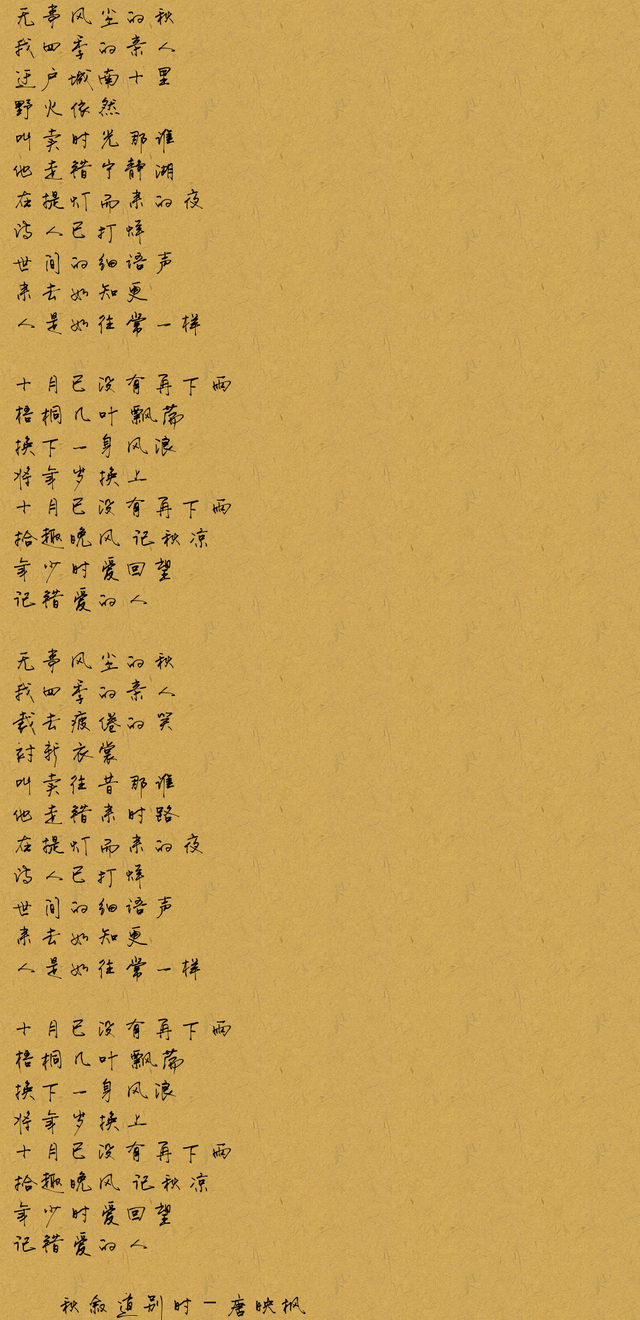 无事风尘的秋
我四季的亲人
迁户城南十里
野火依然
叫卖时光那谁
他走错宁静湖
在提灯而来的夜
诗人已打烊
世间的细语声
来去如知更
人是如往常一样
十月已没有再下雨
梧桐几叶飘荡
换下一身风浪
将年岁换上
十月已没有再下雨
拾趣晚风 记秋凉
年少时爱回望
记错爱的人
无事风尘的秋
我四季的亲人
载去疲倦的笑
衬新衣裳
叫卖往昔那谁
他走错来时路
在提灯而来的夜
诗人已打烊
世间的细语声
来去如知更
人是如往常一样
十月已没有再下雨
梧桐几叶飘荡
换下一身风浪
将年岁换上
十月已没有再下雨
拾趣晚风 记秋凉
年少时爱回望
记错爱的人
秋叙道别时－唐映枫